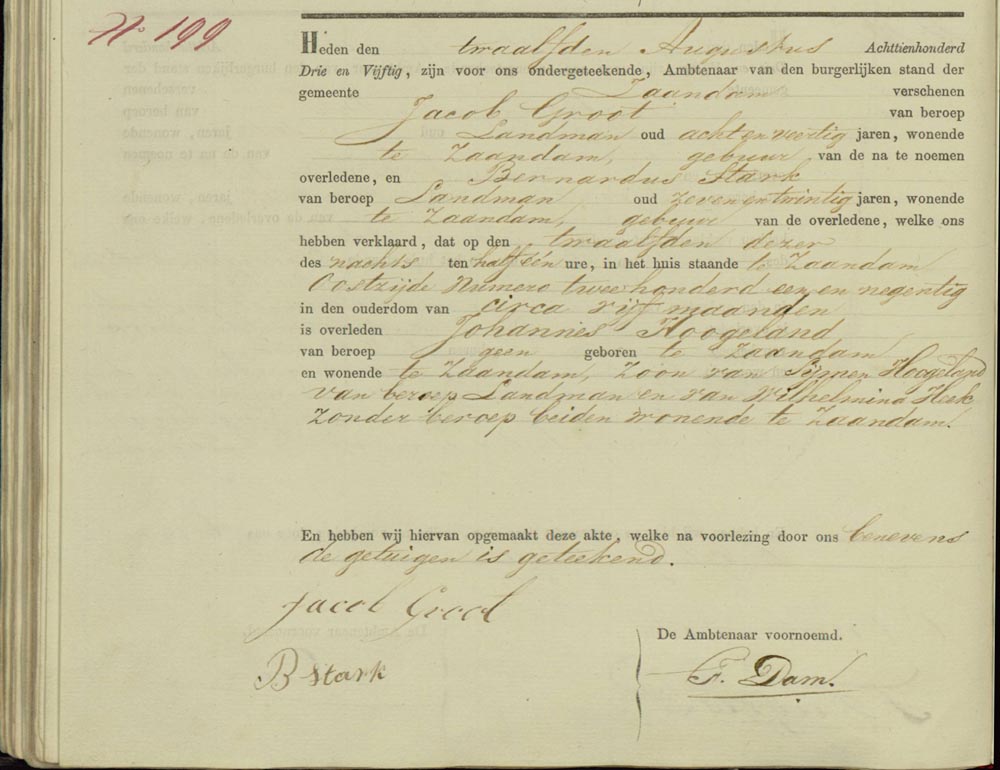 No 199
Heden den twaalfden Augustus Achttienhonderd
Drie en Vijftig, zijn voor ons ondergeteekende, Ambtenaar van den burgerlijken stand der
gemeente Zaandam verschenen
Jacob Groot van beroep
Landman oud acht en veertig jaren, wonende
te Zaandam, gebuur van de na te noemen
overledene, en Bernardus Stark
van beroep Landman oud zeven en twintig jaren, wonende
te Zaandam, gebuur van de overledene, welke ons
hebben verklaard, dat op den twaalfden dezer
des nachts ten half één ure, in het huis staande te Zaandam
Oostzijde Numero twee honderd een en negentig
in den ouderdom van circa vijf maanden
is overleden Johannes Hoogeland
van beroep geen geboren te Zaandam,
en wonende te Zaandam, Zoon van Simen Hoogeland
van beroep Landman en van Wilhelmina Heek
zonder beroep beiden wonende te Zaandam.
En hebben wij hiervan opgemaakt deze akte, welke na voorlezing door ons benevens
de getuigen is geteekend.
Jacob Groot
De Ambtenaar voornoemd.
B Stark
F. Dam.